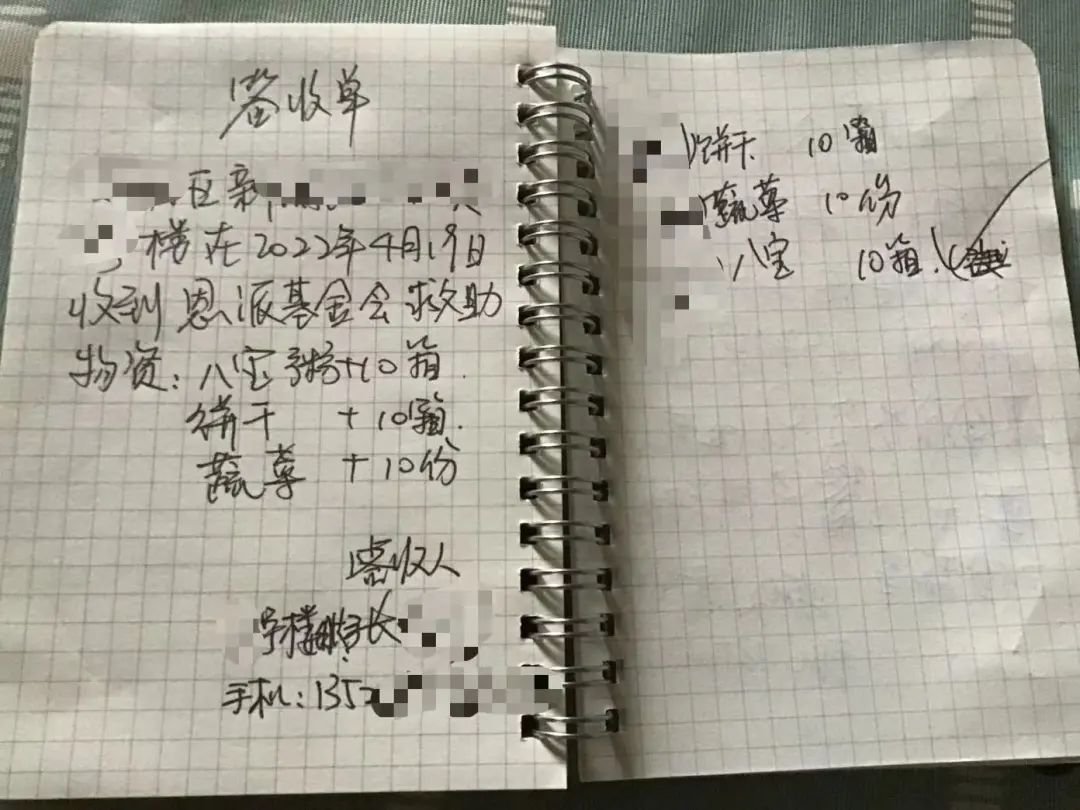 签收单
区新
楼在2022年4月19日
收到恩派基金会救助
物资：八宝粥+10箱.
饼干 +10箱.
蔬菜 +10份
签收人
号楼 长
手机：135
饼干 10箱
蔬菜 10份
八宝 10箱.